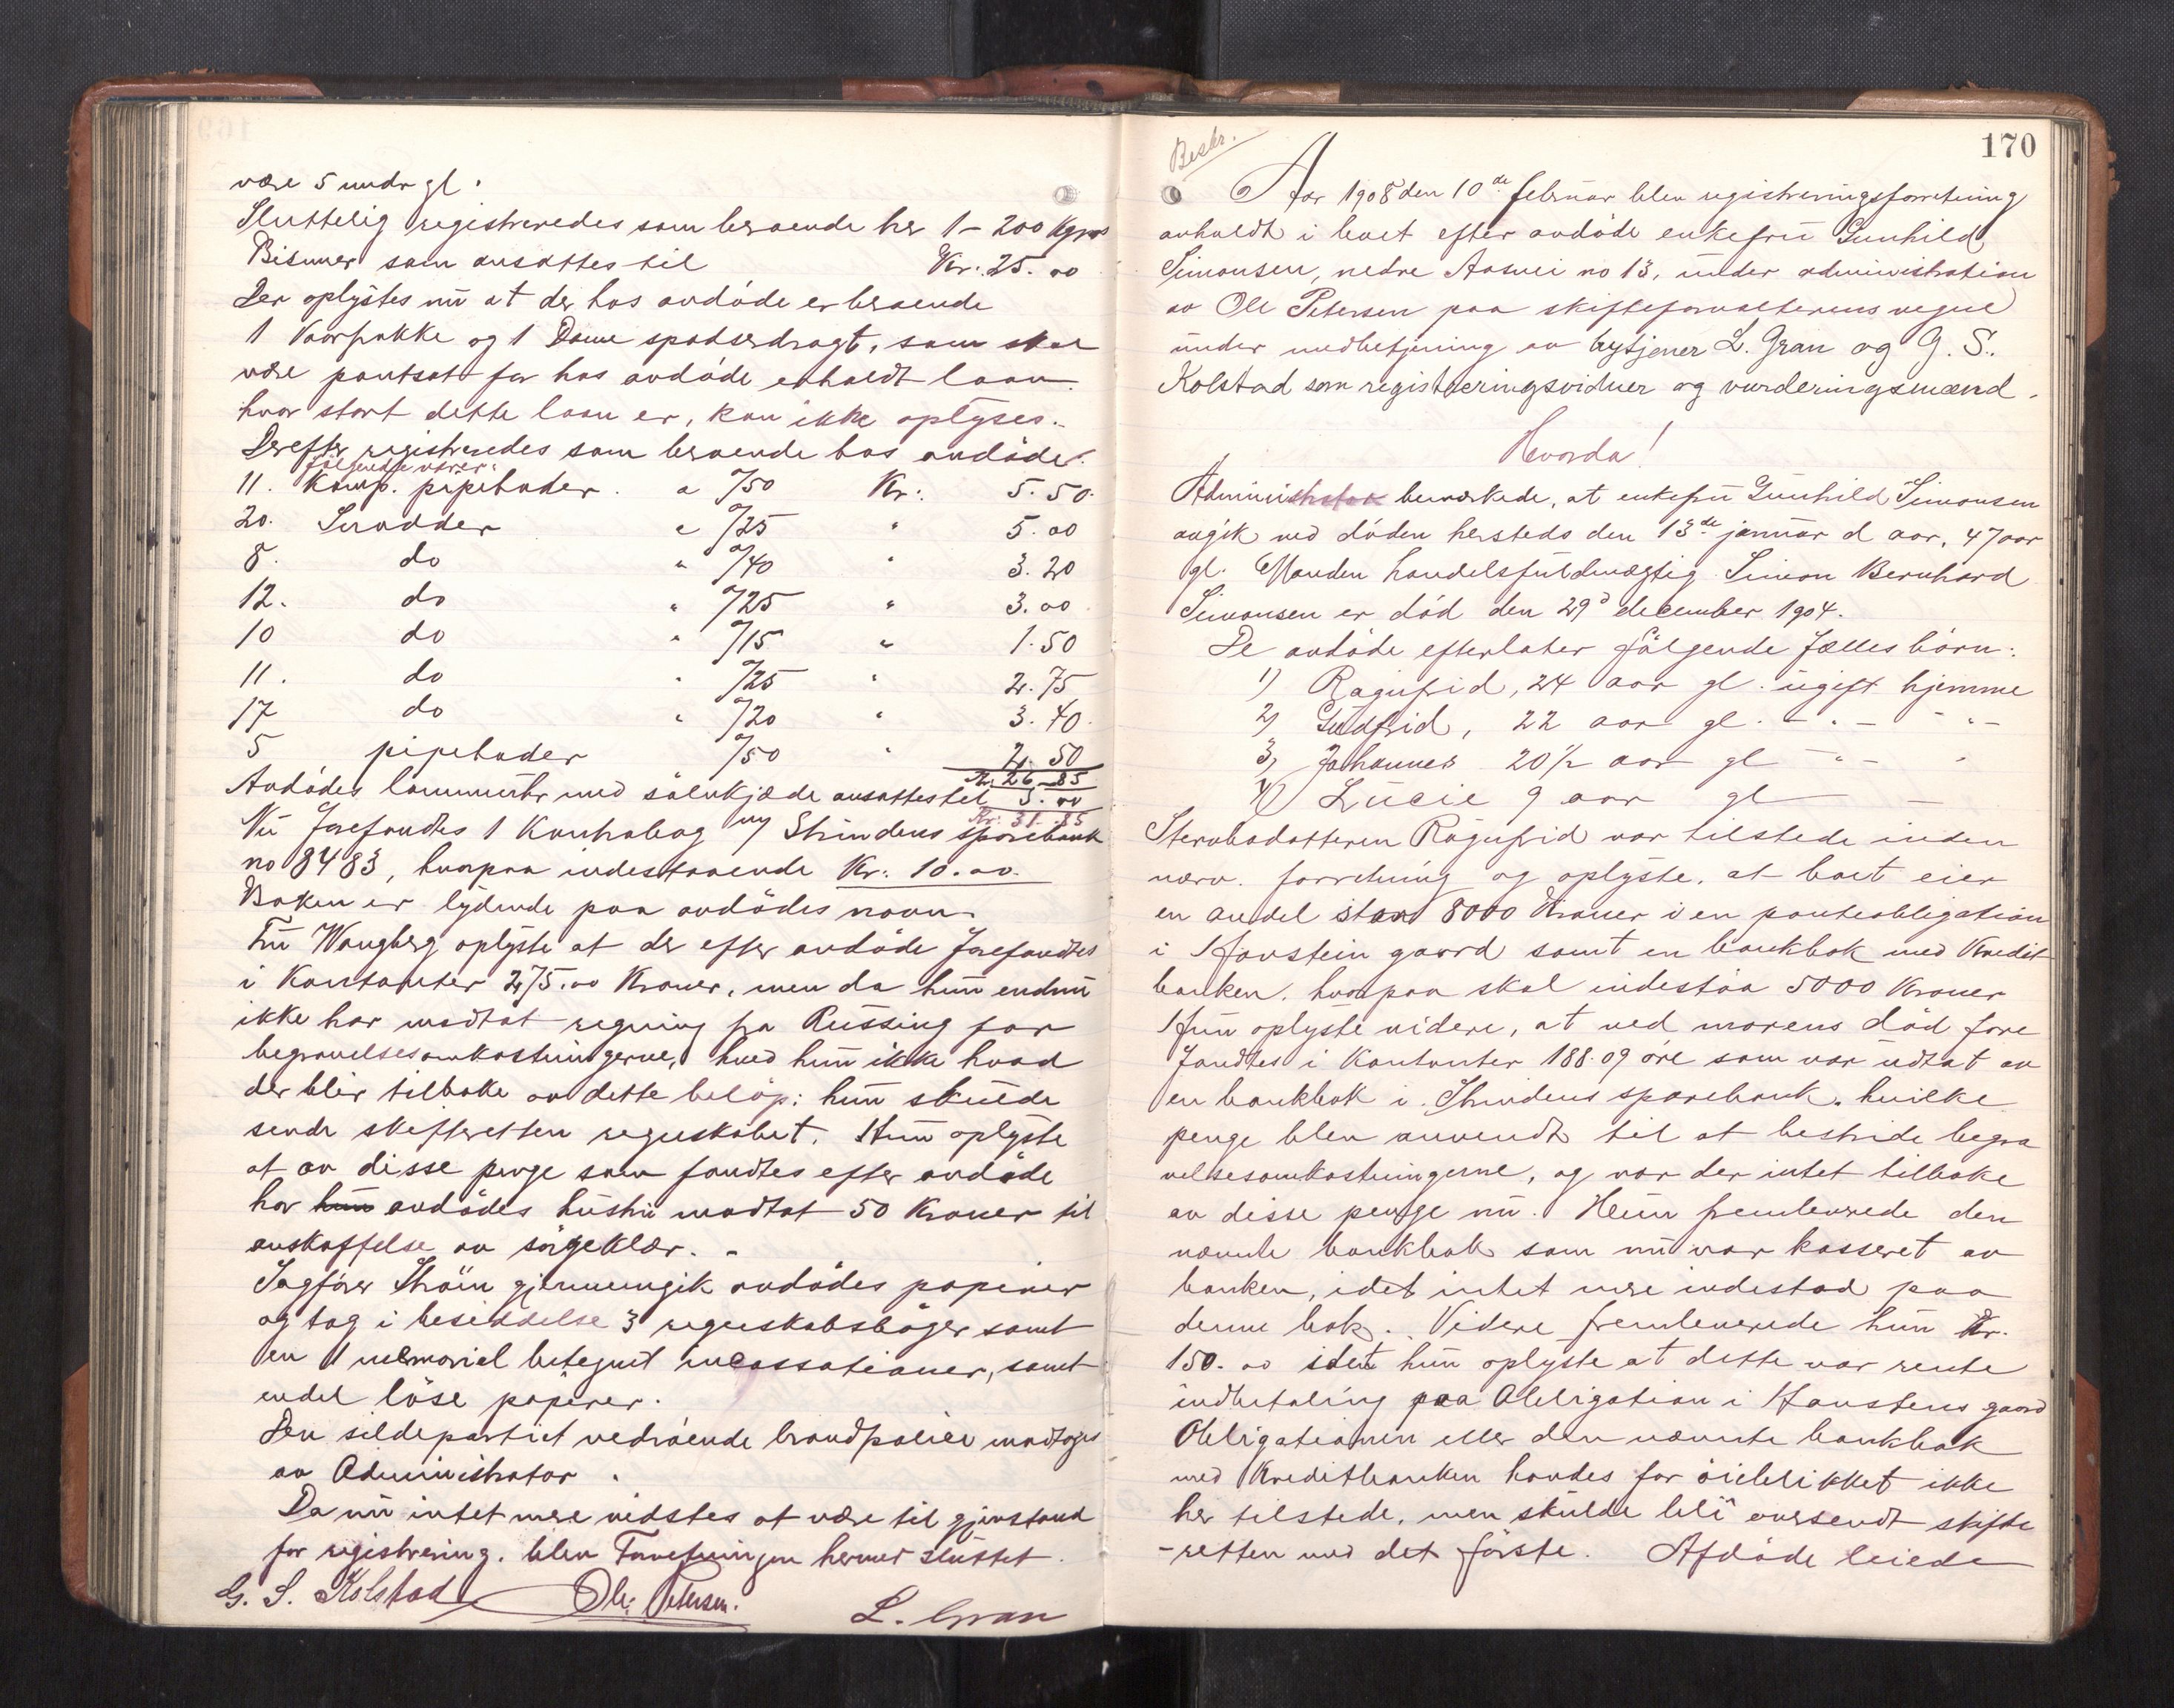 være 5 mndr gl.
Sluttelig registreredes som beroende her 1 - 200 Kgms
Bismer som ansattes til Kr: 25.00
Der oplystes nu at der hos avdöde er beroende
1 Vaarfrakke og 1 Dame spadserdragt, som skal
være pantsat for hos avdöde erholdt laan.
hvor stort dette laan er, kan ikke oplyses.
Derefter registreredes som beroende hos avdöde
følgende varer:
11. Komp. pipehoder a "/50 Kr: 5.50
20. Snadder a "/25 " 5.00
8. do " "/40 " 3.20
12. do " "/25 " 3.00
10 do " "/15 " 1.50
11. do " "/25 " 2.75
17 do " "/20 " 3.40
5 pipehoder "/50 " 2.50
Kr. 26.85
Avdödes lommeuhr med sölvkjæde ansattes til 5.00
Kr: 31.85
Nu forefandtes 1 Kontrabog m/ Strindens sparebank
no 8483, hvorpaa indestaaende Kr: 10.00.
Boken er lydende paa avdödes navn.
Fru Wangberg oplyste at der efter avdöde forefandtes
i Kontanter 275.00 Kroner, men da hun endnu
ikke har modtat regning fra Russing for
begravelsesomkostningerne, hved hun ikke hvad
der blir tilbake av dette belöp: hun skulde
sende skifteretten regnskabet. Hun oplyste
at av disse penge som fandtes efter avdöde
har hun avdödes hustru modtat 50 Kroner til
anskaffelse av sörgeklær. -
Sagförer Ström gjennemgik avdödes papirer
og tog i besiddelse 3 regnskabsböger samt
en 1 memorial betegnet incassationer, samt
endel löse papirer.
Den sildepartiet vedröende brandpolice modtoges
av Administrator.
Da nu intet mere vidstes at være til gjenstand
for registrering. blev Forretningen hermed sluttet.
G. S. Kolstad Ole Petersen. L. Gran
170
Beskr.
Aar 1908 den 10de februar blev registreringsforretning
avholdt i boet efter avdöde enkefru Gunhild
Simonsen, nedre Aasvei no 13, under administration
av Ole Petersen paa skifteforvalterens vegne
under medbetjening av bytjener L. Gran og G. S.
Kolstad som registreringsvidner og vurderingsmænd.
Hvorda!
Administrator bemærkede, at enkefru Gunhild Simonsen
avgik ved döden hersteds den 13de januar d aar, 47 aar
gl. Manden handelsfuldmægtig Simon Bernhard
Simonsen er död den 29d december 1904.
De avdöde efterlater fölgende fælles börn:
1) Ragnfrid, 24 aar gl. ugift hjemme
2) Gudfrid, 22 aar gl. - " - - " -
3) Johannes 20 1/2 aar gl - " - "
4) Lucie 9 aar gl - -
Stervbodatteren Ragnfrid var tilstede under
nærv. forretning og oplyste, at boet eier
en andel stor 8000 Kroner i en panteobligation
i Havstein gaard samt en bankbok med Kredit-
banken. hvorpaa skal indestaa 5000 Kroner
Hun oplyste videre, at ved morens död fore
fandtes i Kontanter 188.09 öre som var udtat av
en bankbok i Strindens sparebank. hvilke
penge blev anvendt til at bestride begra
velsesomkostningerne, og var der intet tilbake
av disse penge nu. Hun fremleverede den
nævnte bankbok som nu var kasseret av
banken, idet intet mere indestod paa
denne bok. Videre fremleverede hun Kr.
150.00 idet hun oplyste at dette var rente
indbetaling paa Obligation i Havstens gaard
Obligationen eller den nævnte bankbok
med Kreditbanken havdes for öieblikket ikke
her tilstede, men skulde bli oversendt skifte
-retten med det förste. Afdöde leiede